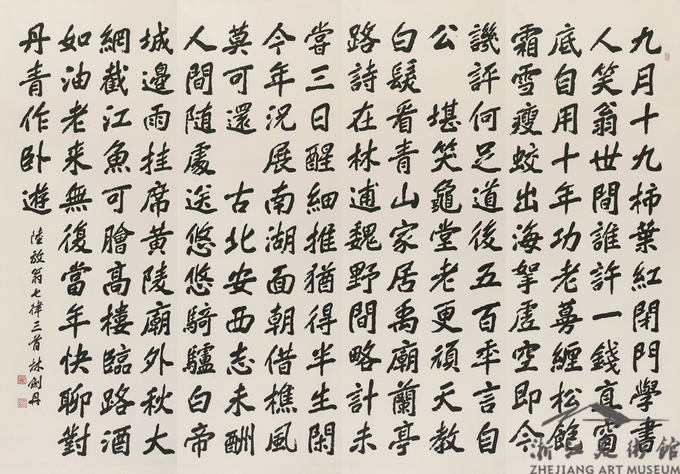 九月十九柿葉紅閉門學書
人笑翁世間誰許一錢直窗
底自用十年功老蔓纏松飽
霜雪瘦蛟出海拏虛空即今
譏評何足道後五百年言自
公 堪笑龜堂老更頑天教
白髮看青山家居禹廟蘭亭
路詩在林逋魏野間略計未
嘗三日醒細推猶得半生閑
今年況展南湖面朝借樵風
莫可還 古北安西志未酬
人間隨處送悠悠騎驢白帝
城邊雨挂席黃陵廟外秋大
網截江魚可膾高樓臨路酒
如油老來無復當年快聊對
丹青作臥遊
陸放翁七律三首 林劍丹
浙江美術館
ZHEJIANG ART MUSEUM